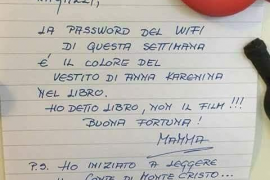 RAGAZZI,
LA PASSWORD DEL WIFI
DI QUESTA SETTIMANA
É IL COLORE DEL
VESTITO DI ANNA KARENINA
NEL LIBRO.
HO DETTO LIBRO, NON IL FILM!!!
BUONA FORTUNA!
MAMMA
P.S. HO INIZIATO A LEGGERE
IL CONTE DI MONTECRISTO...